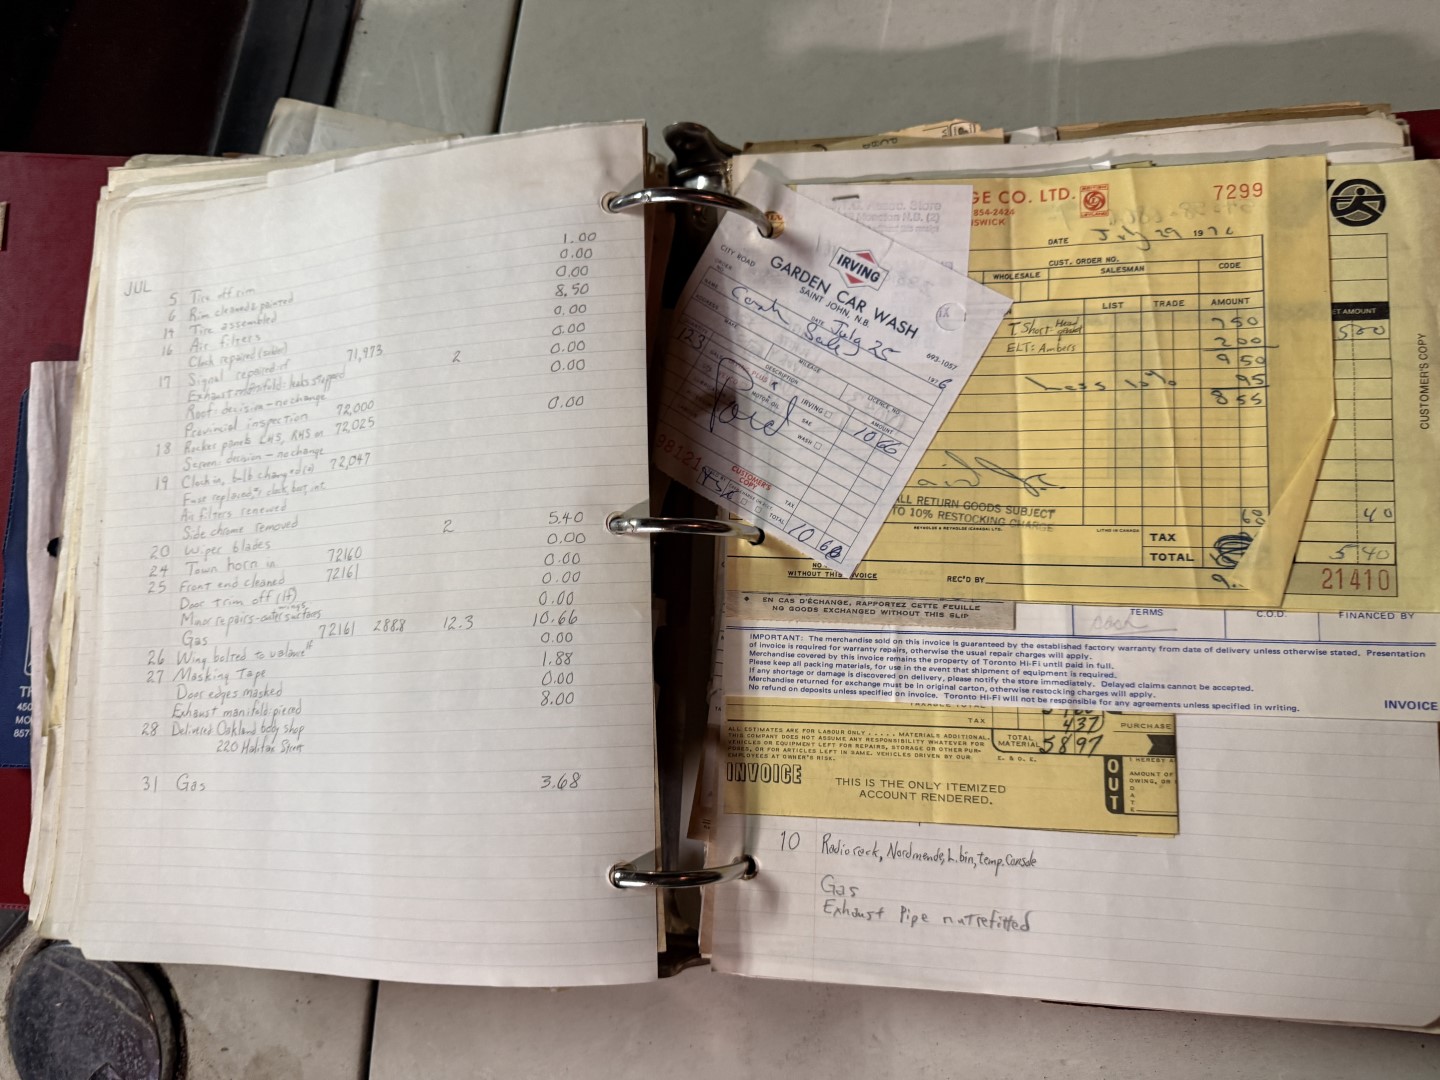 JUL
5 Tire off rim 1.00
6 Rim cleaned & painted 0.00
14 Tire assembled 0.00
16 Air filters 8.50
Clock repaired 0.00
17 Signal repaired 71,973 2 0.00
Exhaust manifold: leaks stopped 0.00
Roof: decision - no change 0.00
Provincial inspection 72,000
18 Rocker panels LHS, RHS on 72,025 0.00
Screen: decision - no change
19 Clock in, bulb changed 72,047
Fuse replaced,
Air filters renewed
Side chrome removed
20 Wiper blades 2 5.40
24 Town horn in 72160 0.00
25 Front end cleaned 72161 0.00
Door trim off 0.00
Minor repairs - outer surfaces 0.00
Gas 72161 288.8 12.3 10.66
26 Wing bolted to valance 0.00
27 Masking Tape 1.88
Door edges masked 0.00
Exhaust manifold pieced 8.00
28 Delivered Oakland body shop
220 Halifax Street
31 Gas 3.68
IRVING
CITY ROAD
GARDEN CAR WASH
SAINT JOHN, N.B.
693-1057
ORDER NO.
DATE July 25 1976
NAME Cash Sale
ADDRESS
MAKE
MILEAGE
LICENCE NO.
123
DESCRIPTION
AMOUNT
MOTOR OIL
IRVING
SAE
WASH
10 66
Paid
98121
CUSTOMER'S COPY
TAX
TOTAL 10 66
GE CO. LTD.
854-2424
SWICK
7299
DATE July 29 1976
CUST. ORDER NO.
WHOLESALE
SALESMAN
CODE
LIST
TRADE
AMOUNT
750
ELT: Ambers 200
950
Less 10% 95
855
ALL RETURN GOODS SUBJECT
TO 10% RESTOCKING CHARGE
REYNOLDS & REYNOLDS (CANADA) LTD.
LITHO IN CANADA
60
TAX
TOTAL
REC'D BY
WITHOUT THIS INVOICE
ET AMOUNT
500
40
540
21410
CUSTOMER'S COPY
EN CAS D'ÉCHANGE, RAPPORTEZ CETTE FEUILLE
NO GOODS EXCHANGED WITHOUT THIS SLIP
TERMS
C.O.D.
FINANCED BY
IMPORTANT: The merchandise sold on this invoice is guaranteed by the established factory warranty from date of delivery unless otherwise stated. Presentation
of invoice is required for warranty repairs, otherwise the usual repair charges will apply.
Merchandise covered by this invoice remains the property of Toronto Hi-Fi until paid in full.
Please keep all packing materials, for use in the event that shipment of equipment is required.
If any shortage or damage is discovered on delivery, please notify the store immediately. Delayed claims cannot be accepted.
Merchandise returned for exchange must be in original carton, otherwise restocking charges will apply.
No refund on deposits unless specified on invoice. Toronto Hi-Fi will not be responsible for any agreements unless specified in writing.
INVOICE
TAX 437
TOTAL MATERIAL 5897
PURCHASE
E. & O. E.
ALL ESTIMATES ARE FOR LABOUR ONLY ..... MATERIALS ADDITIONAL.
THIS COMPANY DOES NOT ASSUME ANY RESPONSIBILITY WHATEVER FOR
VEHICLES OR EQUIPMENT LEFT FOR REPAIRS, STORAGE OR OTHER PUR-
POSES, OR FOR ARTICLES LEFT IN SAME. VEHICLES DRIVEN BY OUR
EMPLOYEES AT OWNER'S RISK.
INVOICE
THIS IS THE ONLY ITEMIZED
ACCOUNT RENDERED.
OUT
I HEREBY A
AMOUNT OF
OWING, OR
DATE
10 Radio rack, Nordmende, L. bin, temp. Console
Gas
Exhaust Pipe nut refitted